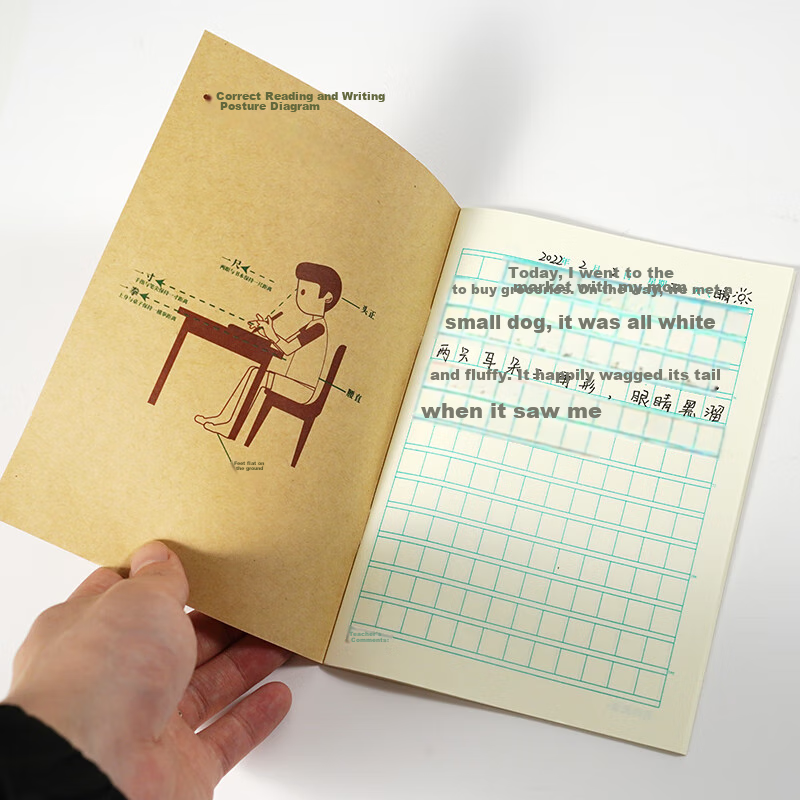 Correct Reading and Writing
Posture Diagram
一尺
两眼与书本保持一尺距离
一寸
手指与笔尖保持一寸距离
一拳
上身与桌子保持一拳距离
头正
腰直
Feet flat on
the ground
2022年 2
晴
Today, I went to the
market with my mom
to buy groceries. On the way, we met a
small dog, it was all white
两只耳朵
形， 眼睛黑溜
and fluffy. It happily wagged its tail
when it saw me
Teacher's
Comments: